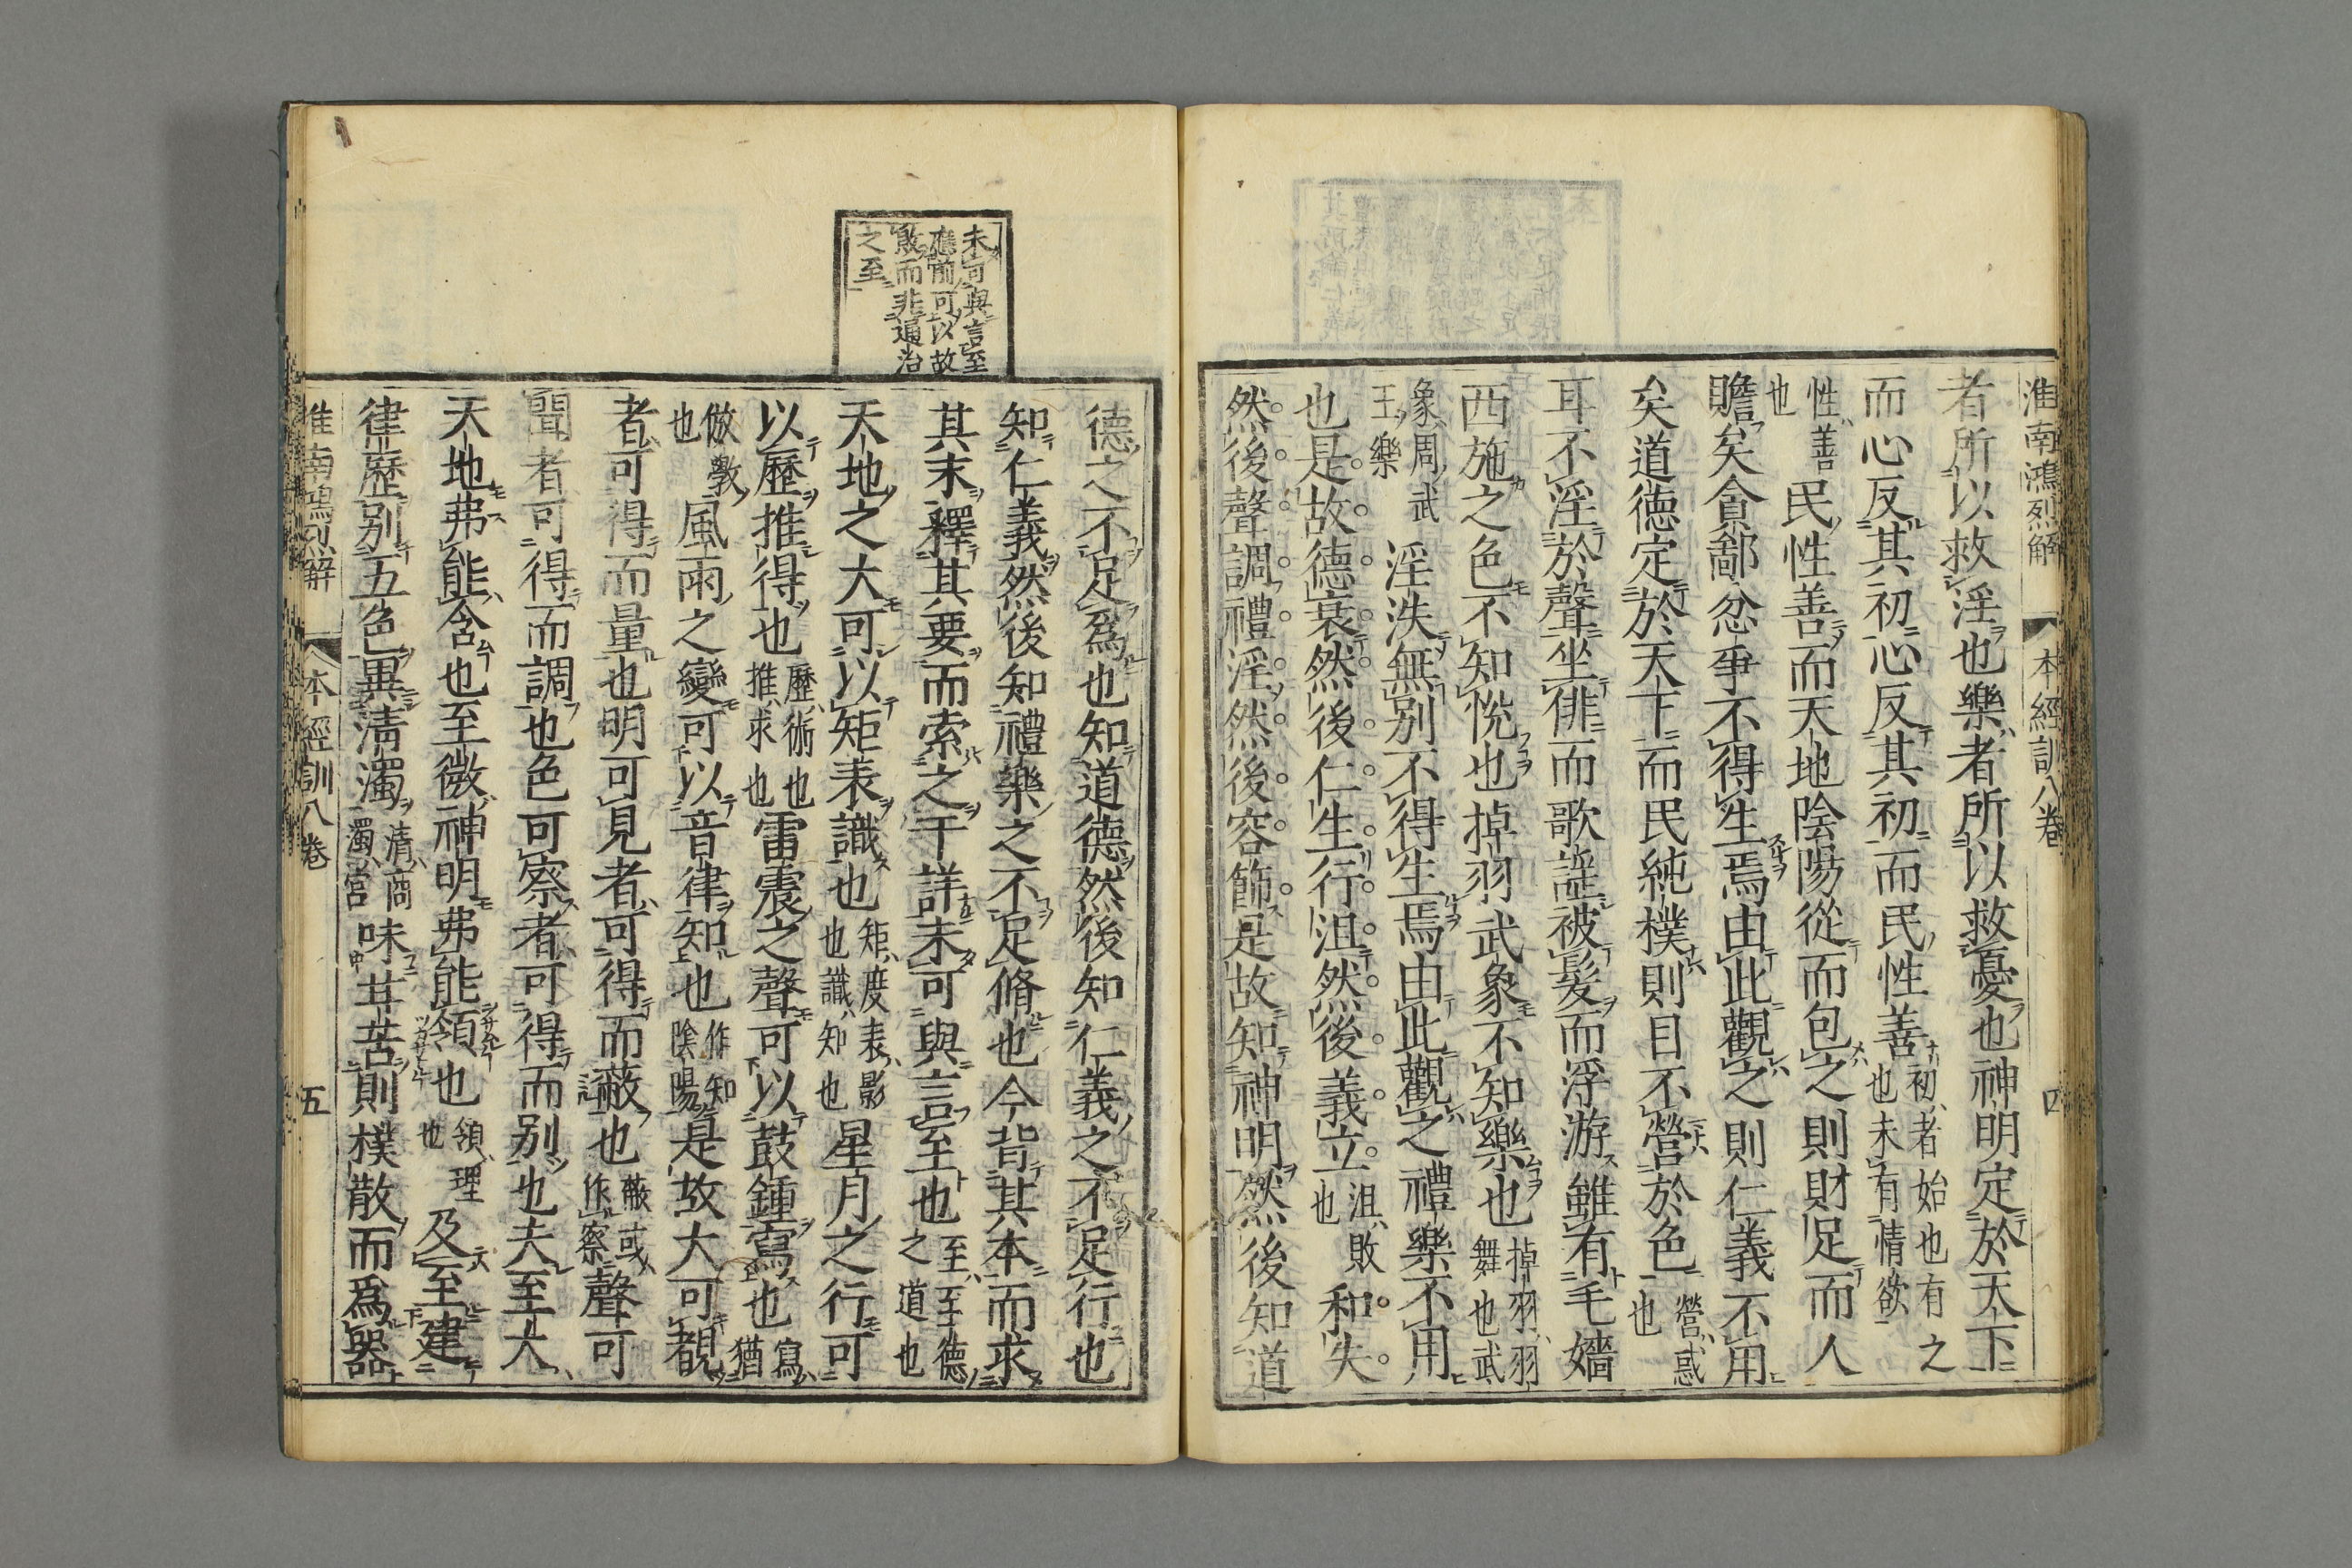 淮南鴻烈解 本經訓八卷 四
者所以救淫也樂者所以救憂也神明定於天下
而心反其初心反其初而民性善初者始也有之也未有情欲
性善也民性善而天地陰陽從而包之則財足而人
贍矣貪鄙忿爭不得生焉由此觀之則仁義不用
矣道徳定於天下而民純樸則目不營於色營惑也
耳不淫於聲坐俳而歌謡被髪而浮游雖有毛嬙
西施之色不知恱也掉羽武象不知樂也掉羽羽舞也武
象周武王樂淫泆無別不得生焉由此觀之禮樂不用
也是故德衰然後仁生行沮然後義立沮敗也和失
然後聲調禮淫然後容飾是故知神明然後知道
德之不足爲也知道德然後知仁義之不足行也
知仁義然後知禮樂之不足脩也今背其本而求
其末釋其要而索之于詳未可與言至也至至德之道也
天地之大可以矩表識也矩度表影也識知也星月之行可
以歷推得也歷術也推求也雷震之聲可以鼓鍾寫也寫猶
倣斆也風雨之變可以音律知也作知陰陽是故大可覩
者可得而量也明可見者可得而蔽也蔽或作察聲可
聞者可得而調也色可察者可得而别也夫至大
天地弗能含也至微神明弗能領也領理也及至建
律歷别五色異清濁清商濁宮味甘苦則樸散而爲器
淮南鴻烈解 本經訓八卷 五
未可與言至
應前可以故
敗而非通治
之至